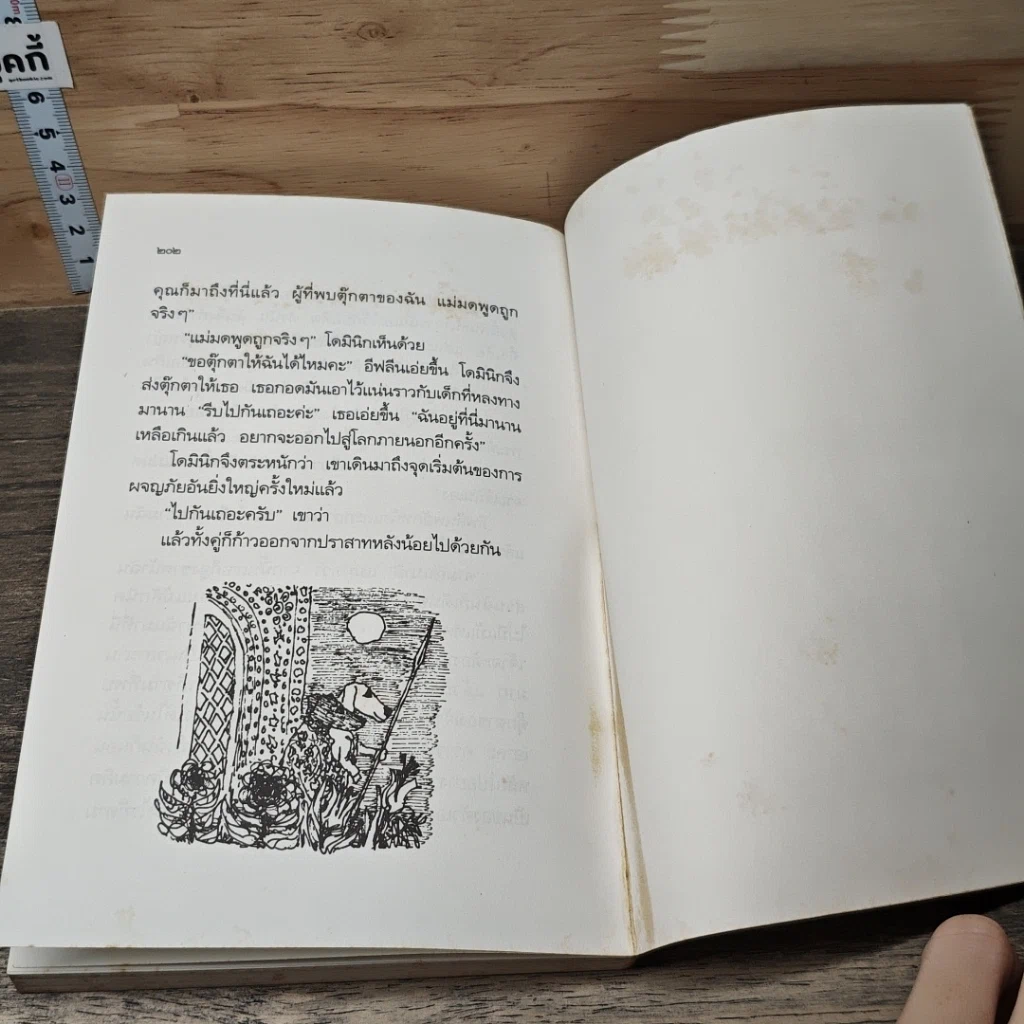 คกี้
6
5
4
3
2
1
๒๐๒
คุณก็มาถึงที่นี่แล้ว ผู้ที่พบตุ๊กตาของฉัน แม่มดพูดถูก
จริงๆ”
“แม่มดพูดถูกจริงๆ” โดมินิกเห็นด้วย
“ขอตุ๊กตาให้ฉันได้ไหมคะ” อีฟลีนเอ่ยขึ้น โดมินิกจึง
ส่งตุ๊กตาให้เธอ เธอกอดมันเอาไว้แน่นราวกับเด็กที่หลงทาง
มานาน “รีบไปกันเถอะค่ะ” เธอเอ่ยขึ้น “ฉันอยู่ที่นี่มานาน
เหลือเกินแล้ว อยากจะออกไปสู่โลกภายนอกอีกครั้ง”
โดมินิกจึงตระหนักว่า เขาเดินมาถึงจุดเริ่มต้นของการ
ผจญภัยอันยิ่งใหญ่ครั้งใหม่แล้ว
“ไปกันเถอะครับ” เขาว่า
แล้วทั้งคู่ก็ก้าวออกจากปราสาทหลังน้อยไปด้วยกัน